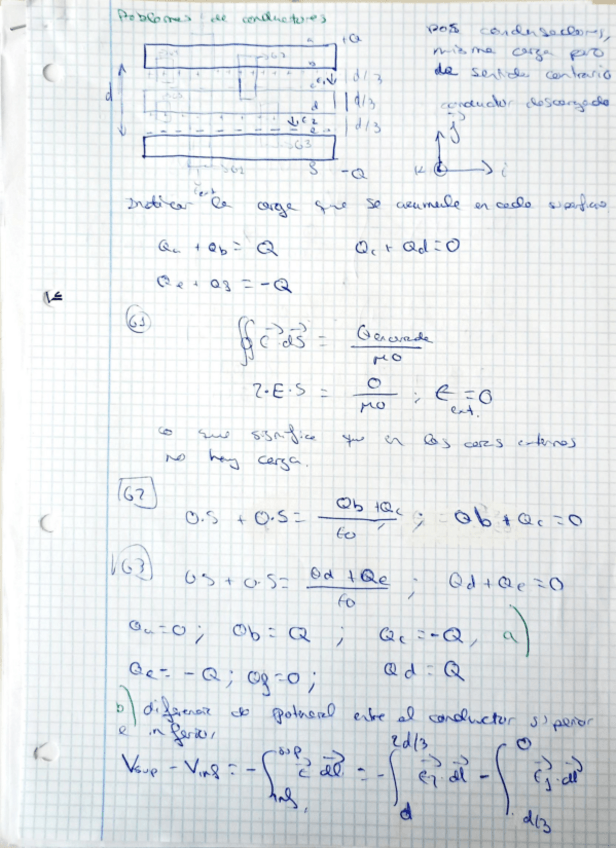 Problemas de conductores
+Q
a
b
c
d
e
f
-Q
d
d/3
d/3
d/3
E1
E2
G3
G2
Dos condensadores,
misma carga pero
de sentido contrario
conductor descargado
j
k
i
Indicar la carga que se acumula en cada superficie
Qa + Qb = Q Qc + Qd = 0
Qe + Qf = -Q
G1
∯ E · dS = Qencerrada / μ0
2·E·S = 0 / μ0 ; E ext. = 0
lo que significa que en las caras externas
no hay carga.
G2
0·S + 0·S = Qb + Qc / ε0 ; Qb + Qc = 0
G3
0S + 0·S = Qd + Qe / ε0 ; Qd + Qe = 0
Qa = 0 ; Qb = Q ; Qc = -Q, a)
Qe = -Q ; Qf = 0 ; Qd = Q
b) diferencia de potencial entre el conductor superior
e inferior,
Vsup - Vinf = - ∫ inf. sup E · dl = - ∫ d 2d/3 E · dl - ∫ d/3 0 E · dl